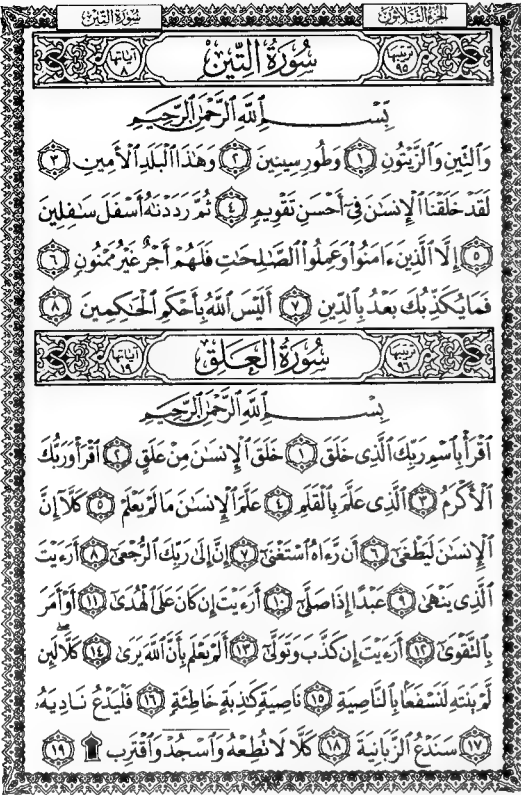 سُورَةُ التِّين
الجزء الثلاثون
آياتها ٨
سُورَةُ التِّين
ترتيبها ٩٥
بِسْمِ اللَّهِ الرَّحْمَٰنِ الرَّحِيمِ
وَالتِّينِ وَالزَّيْتُونِ ١ وَطُورِ سِينِينَ ٢ وَهَٰذَا الْبَلَدِ الْأَمِينِ ٣
لَقَدْ خَلَقْنَا الْإِنسَٰنَ فِي أَحْسَنِ تَقْوِيمٍ ٤ ثُمَّ رَدَدْنَٰهُ أَسْفَلَ سَٰفِلِينَ
٥ إِلَّا الَّذِينَ ءَامَنُوا وَعَمِلُوا الصَّٰلِحَٰتِ فَلَهُمْ أَجْرٌ غَيْرُ مَمْنُونٍ ٦
فَمَا يُكَذِّبُكَ بَعْدُ بِالدِّينِ ٧ أَلَيْسَ اللَّهُ بِأَحْكَمِ الْحَٰكِمِينَ ٨
آياتها ١٩
سُورَةُ الْعَلَقِ
ترتيبها ٩٦
بِسْمِ اللَّهِ الرَّحْمَٰنِ الرَّحِيمِ
اقْرَأْ بِاسْمِ رَبِّكَ الَّذِي خَلَقَ ١ خَلَقَ الْإِنسَٰنَ مِنْ عَلَقٍ ٢ اقْرَأْ وَرَبُّكَ
الْأَكْرَمُ ٣ الَّذِي عَلَّمَ بِالْقَلَمِ ٤ عَلَّمَ الْإِنسَٰنَ مَا لَمْ يَعْلَمْ ٥ كَلَّا إِنَّ
الْإِنسَٰنَ لَيَطْغَىٰ ٦ أَن رَّءَاهُ اسْتَغْنَىٰ ٧ إِنَّ إِلَىٰ رَبِّكَ الرُّجْعَىٰ ٨ أَرَءَيْتَ
الَّذِي يَنْهَىٰ ٩ عَبْدًا إِذَا صَلَّىٰ ١٠ أَرَءَيْتَ إِن كَانَ عَلَى الْهُدَىٰ ١١ أَوْ أَمَرَ
بِالتَّقْوَىٰ ١٢ أَرَءَيْتَ إِن كَذَّبَ وَتَوَلَّىٰ ١٣ أَلَمْ يَعْلَم بِأَنَّ اللَّهَ يَرَىٰ ١٤ كَلَّا لَئِن
لَّمْ يَنتَهِ لَنَسْفَعًا بِالنَّاصِيَةِ ١٥ نَاصِيَةٍ كَٰذِبَةٍ خَاطِئَةٍ ١٦ فَلْيَدْعُ نَادِيَهُ
١٧ سَنَدْعُ الزَّبَانِيَةَ ١٨ كَلَّا لَا تُطِعْهُ وَاسْجُدْ وَاقْتَرِب ۩ ١٩